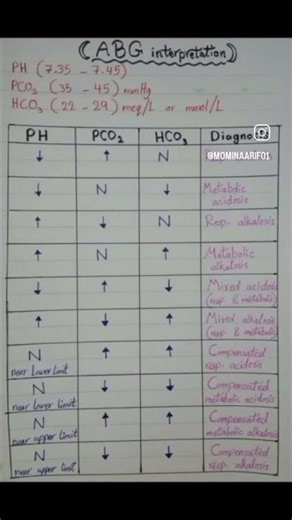 (ABG interpretation)
PH (7.35 - 7.45)
PCO2 (35 - 45) mmHg
HCO3 (22 - 29) meq/L or mmol/L
PH PCO2 HCO3 Diagnosis
↓ ↑ N
@MOMINAARIF01
↓ N ↓ Metabolic
acidosis
↑ ↓ N Resp- alkalosis
↑ N ↑ Metabolic
alkalosis
↓ ↑ ↓ Mixed acidosis
(resp & metabolic)
↑ ↓ ↑ Mixed alkalosis
(resp & metabolic)
N ↑ ↑ Compensated
near Lower Limit resp. acidosis
N ↓ ↓ Compensated
near lower limit metabolic acidosis
N ↑ ↑ Compensated
near upper limit metabolic alkalosis
N ↓ ↓ Compensated
near upper limit resp alkalosis